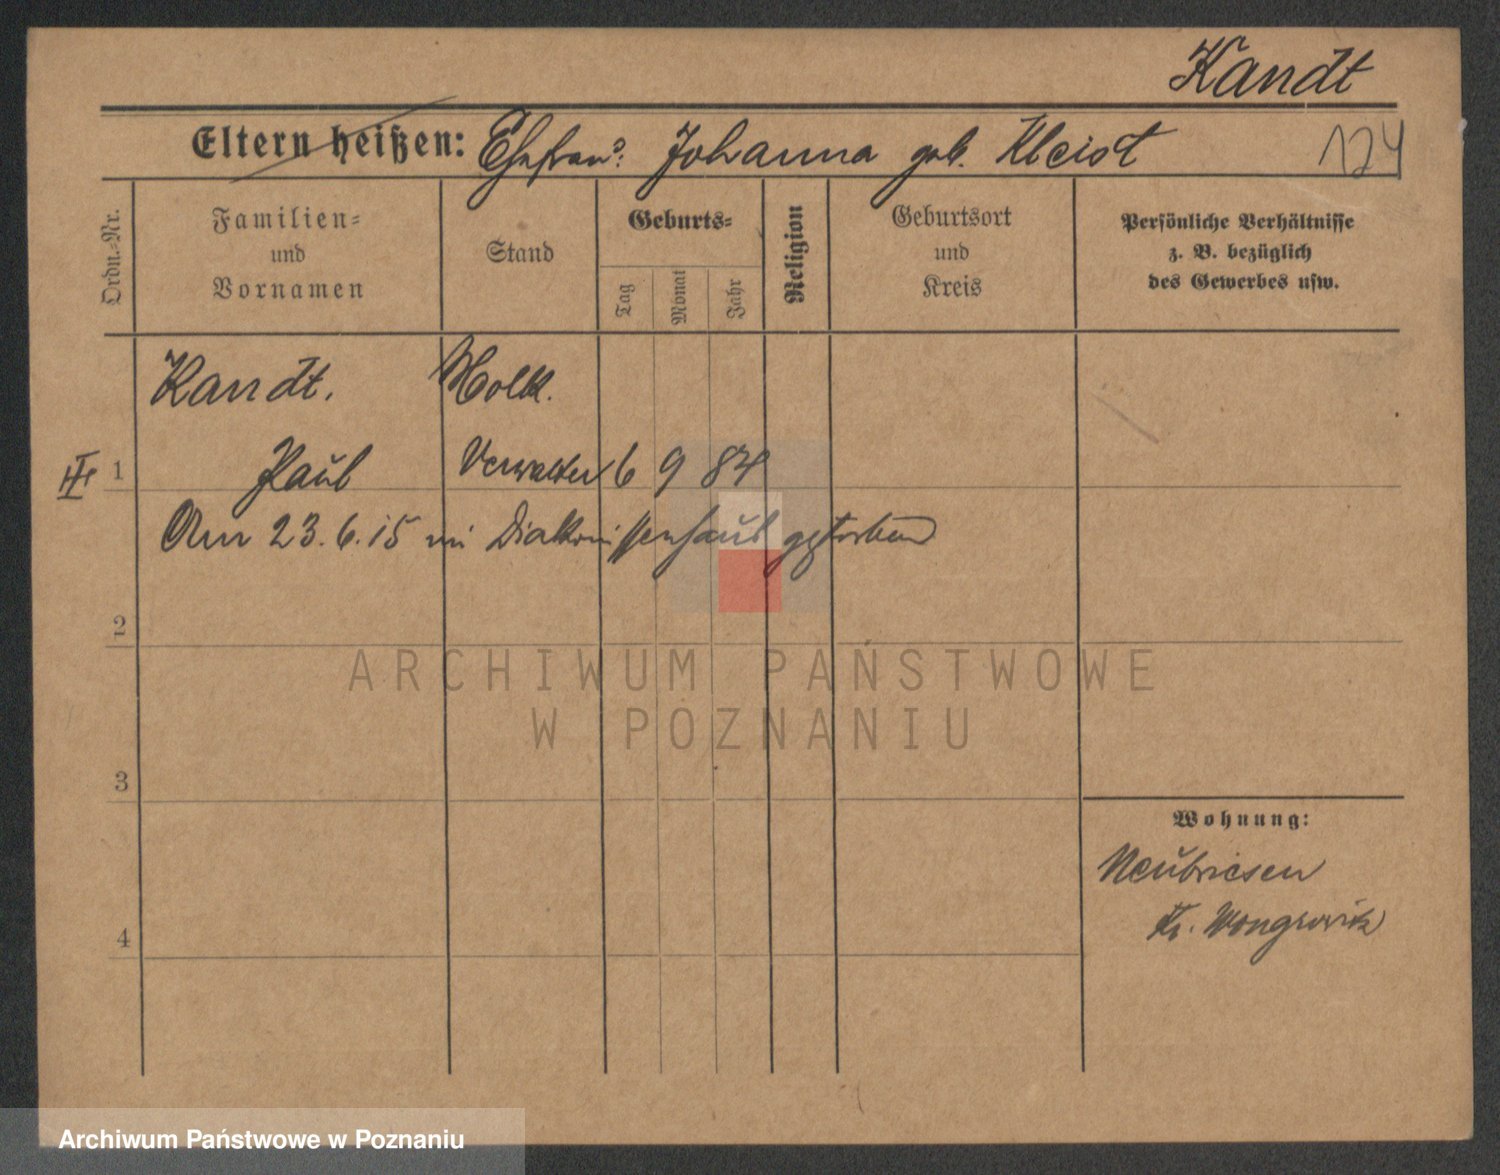 Kandt
Eltern heißen: Ehefrau: Johanna geb. Kleist
124
Ordn.-Nr.
Familien-
und
Vornamen
Stand
Geburts-
Tag
Monat
Jahr
Religion
Geburtsort
und
Kreis
Persönliche Verhältnisse
z. B. bezüglich
des Gewerbes usw.
Kandt. Molk.
1 Paul Verwalter 6 9 84
Am 23.6.15 im Diakonissenhaus gestorben
2
ARCHIWUM PAŃSTWOWE
W POZNANIU
3
Wohnung:
Neubriesen
Kr. Wongrowitz
4
Archiwum Państwowe w Poznaniu